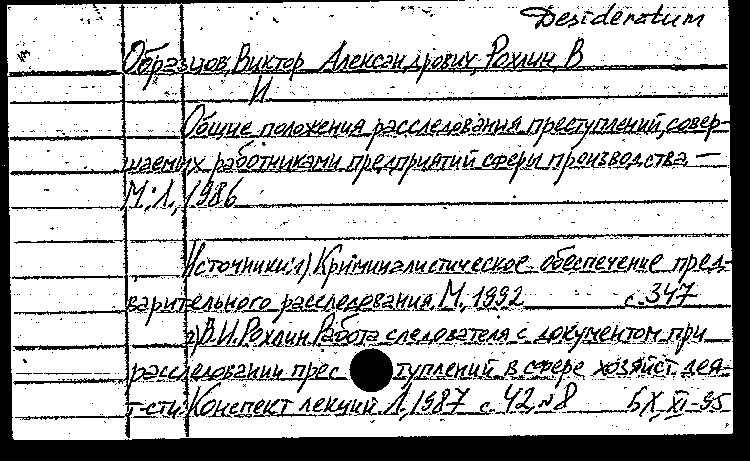 Desideratum
Образцов, Виктор Александрович, Рохлин, В
И.
Общие положения расследования преступлений, совер-
шаемых работниками предприятий сферы производства. —
М.; Л., 1986
Источники: 1) Криминалистическое обеспечение пред-
варительного расследования. М., 1992 с. 347
2) В.И. Рохлин Работа следователя с документом при
расследовании преступлений в сфере хозяйст. дея-
т-сти. Конспект лекций. Л., 1987 с. 42, №8 БХ, XI-95